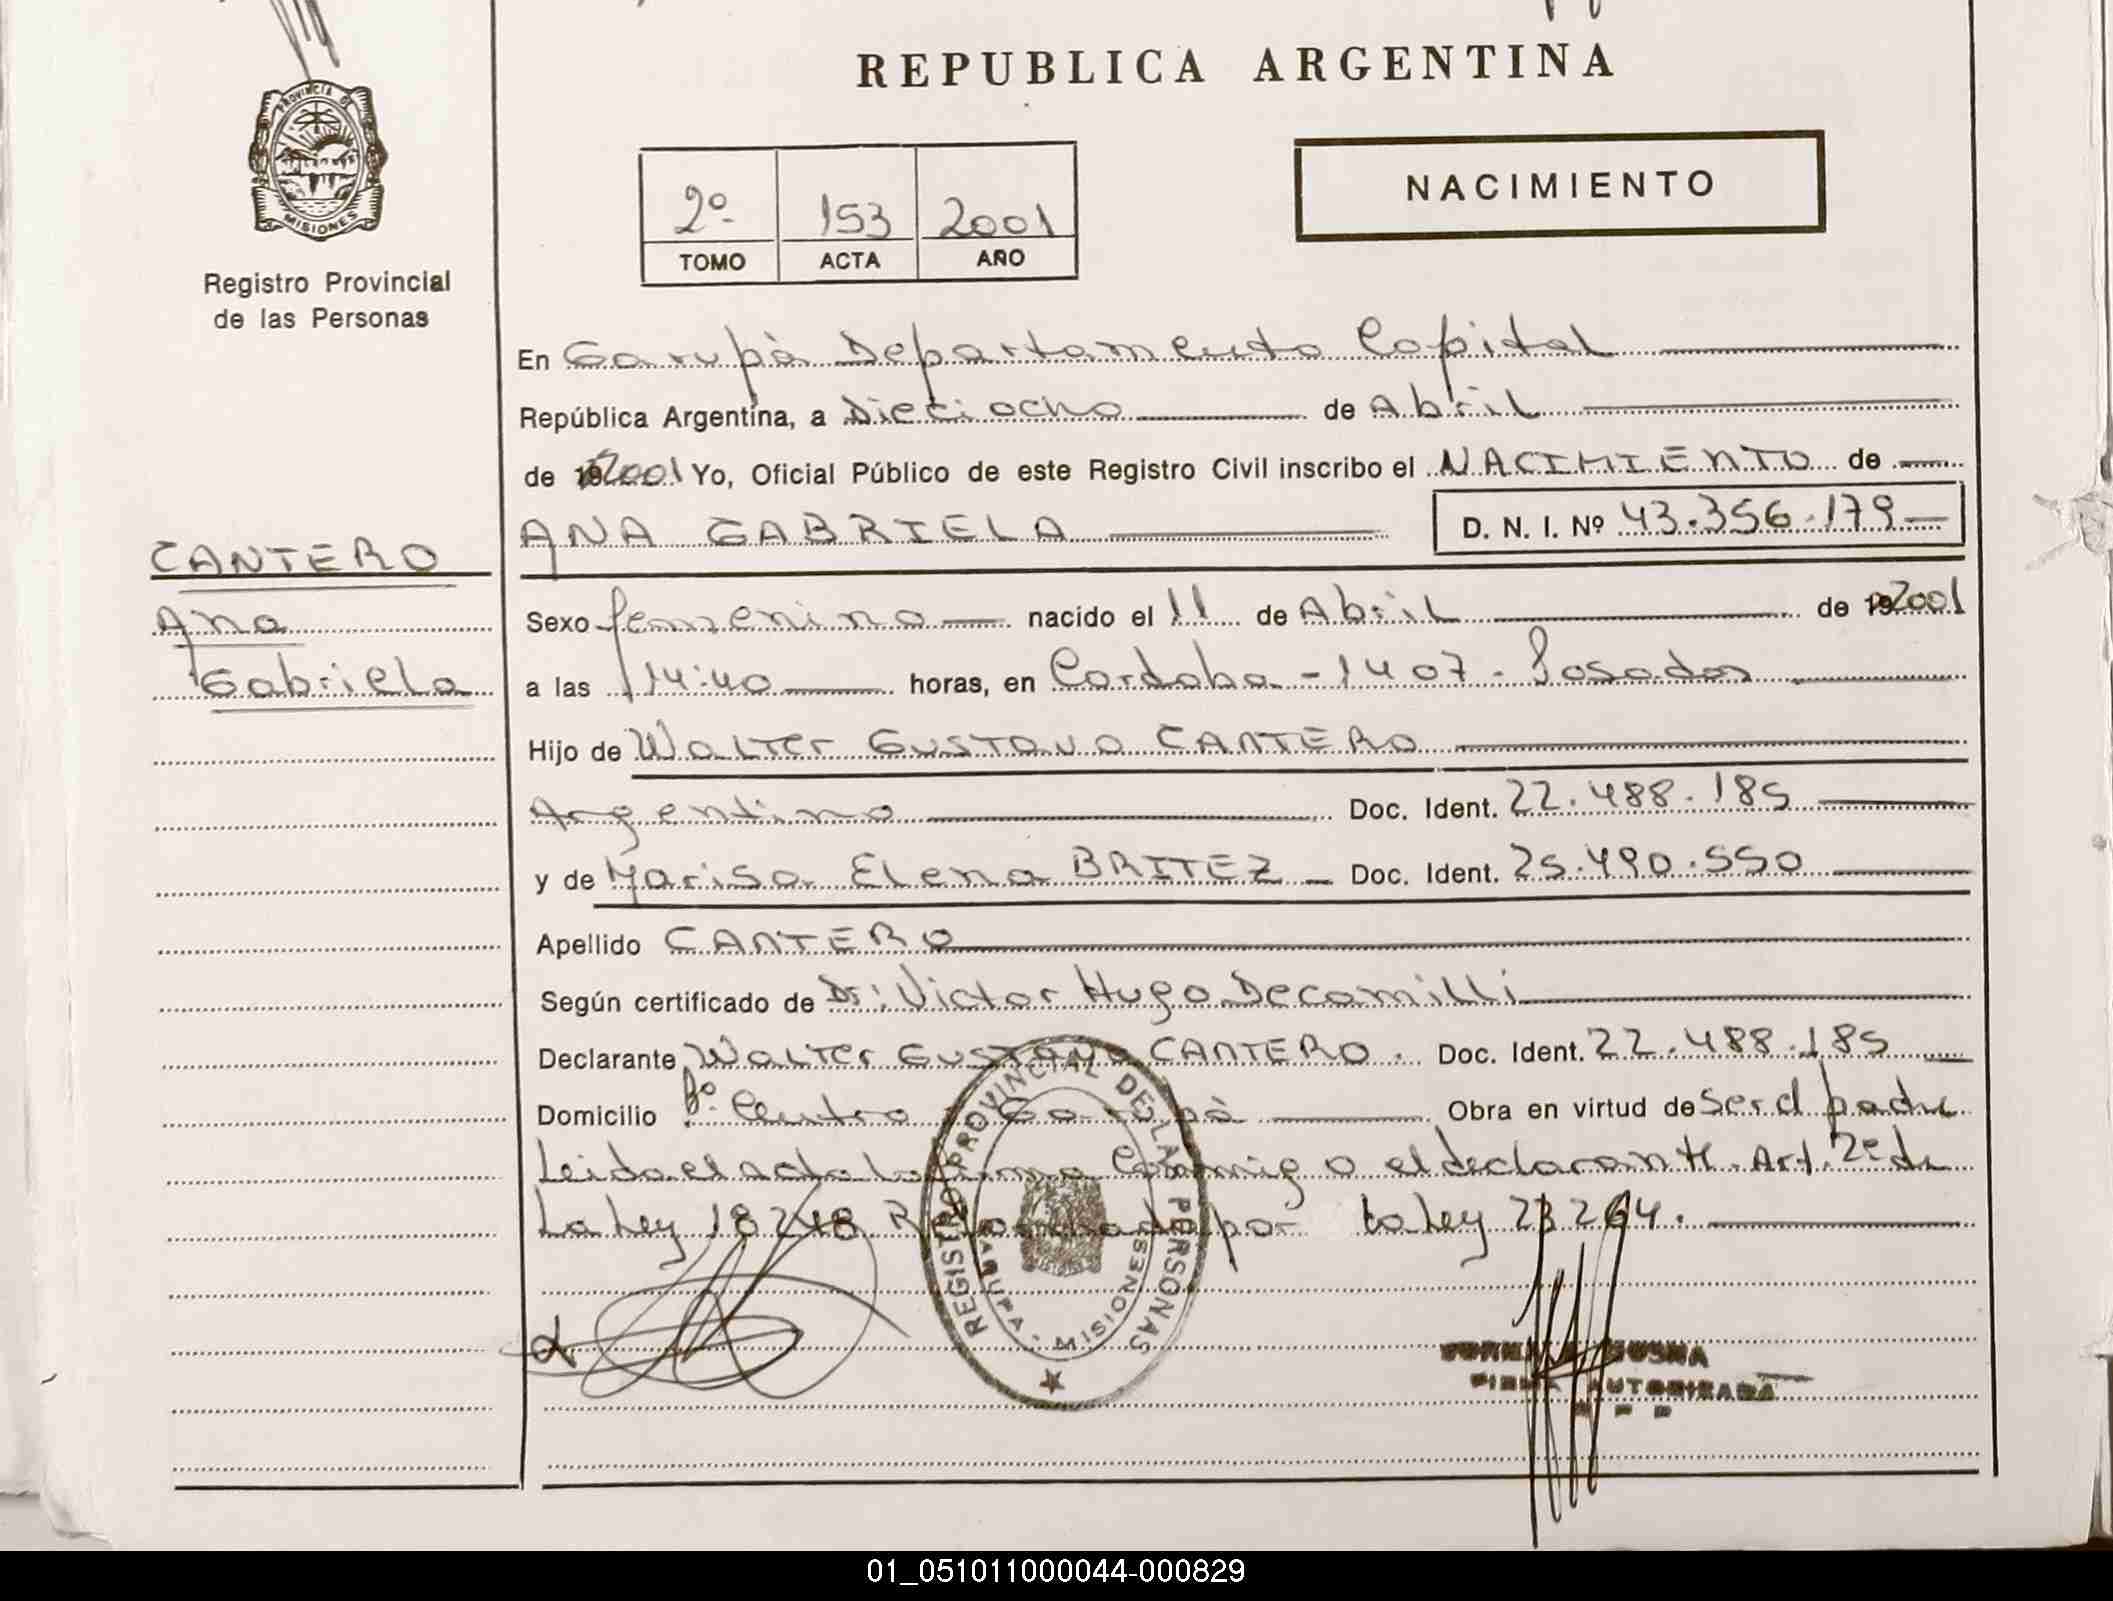 REPUBLICA ARGENTINA
PROVINCIA DE
MISIONES
Registro Provincial
de las Personas
2º 153 2001
TOMO ACTA AÑO
NACIMIENTO
En Garupà Departamento Capital
República Argentina, a Dieciocho de Abril
de 2001 Yo, Oficial Público de este Registro Civil inscribo el NACIMIENTO de
ANA GABRIELA D. N. I. Nº 43.356.179
CANTERO
Ana
Gabriela
Sexo femenino nacido el 11 de Abril de 2001
a las 14:40 horas, en Cordoba - 1407 - Posadas
Hijo de Walter Gustavo CANTERO
Argentino Doc. Ident. 22.488.185
y de Marisa Elena BRITEZ Doc. Ident. 25.490.550
Apellido CANTERO
Según certificado de Dr: Victor Hugo Decamilli
Declarante Walter Gustavo CANTERO. Doc. Ident. 22.488.185
Domicilio Bº. Centro Garupà Obra en virtud de Ser el padre
Leida el acta la firma Conmigo el declarante. Art. 2º de
La Ley 18248 por la Ley 23264.
REGISTRO PROVINCIAL DE LAS PERSONAS
GARUPA - MISIONES
FIRMA AUTORIZADA
01_051011000044-000829